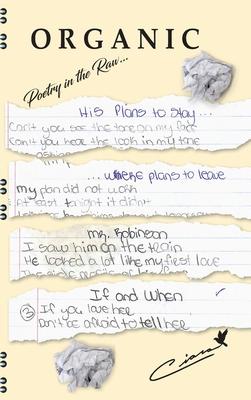 ORGANIC
Poetry in the Raw...
His Plans to Stay...
Can't you see the tone on my face
Can't you hear the look in my tone
...Where plans to leave
my plan did not work
At least tonight it didn't
Mr. Robinson
I saw him on the train
He looked a lot like my first love
If and When
3 If you love her
Don't be afraid to tell her
Ciara